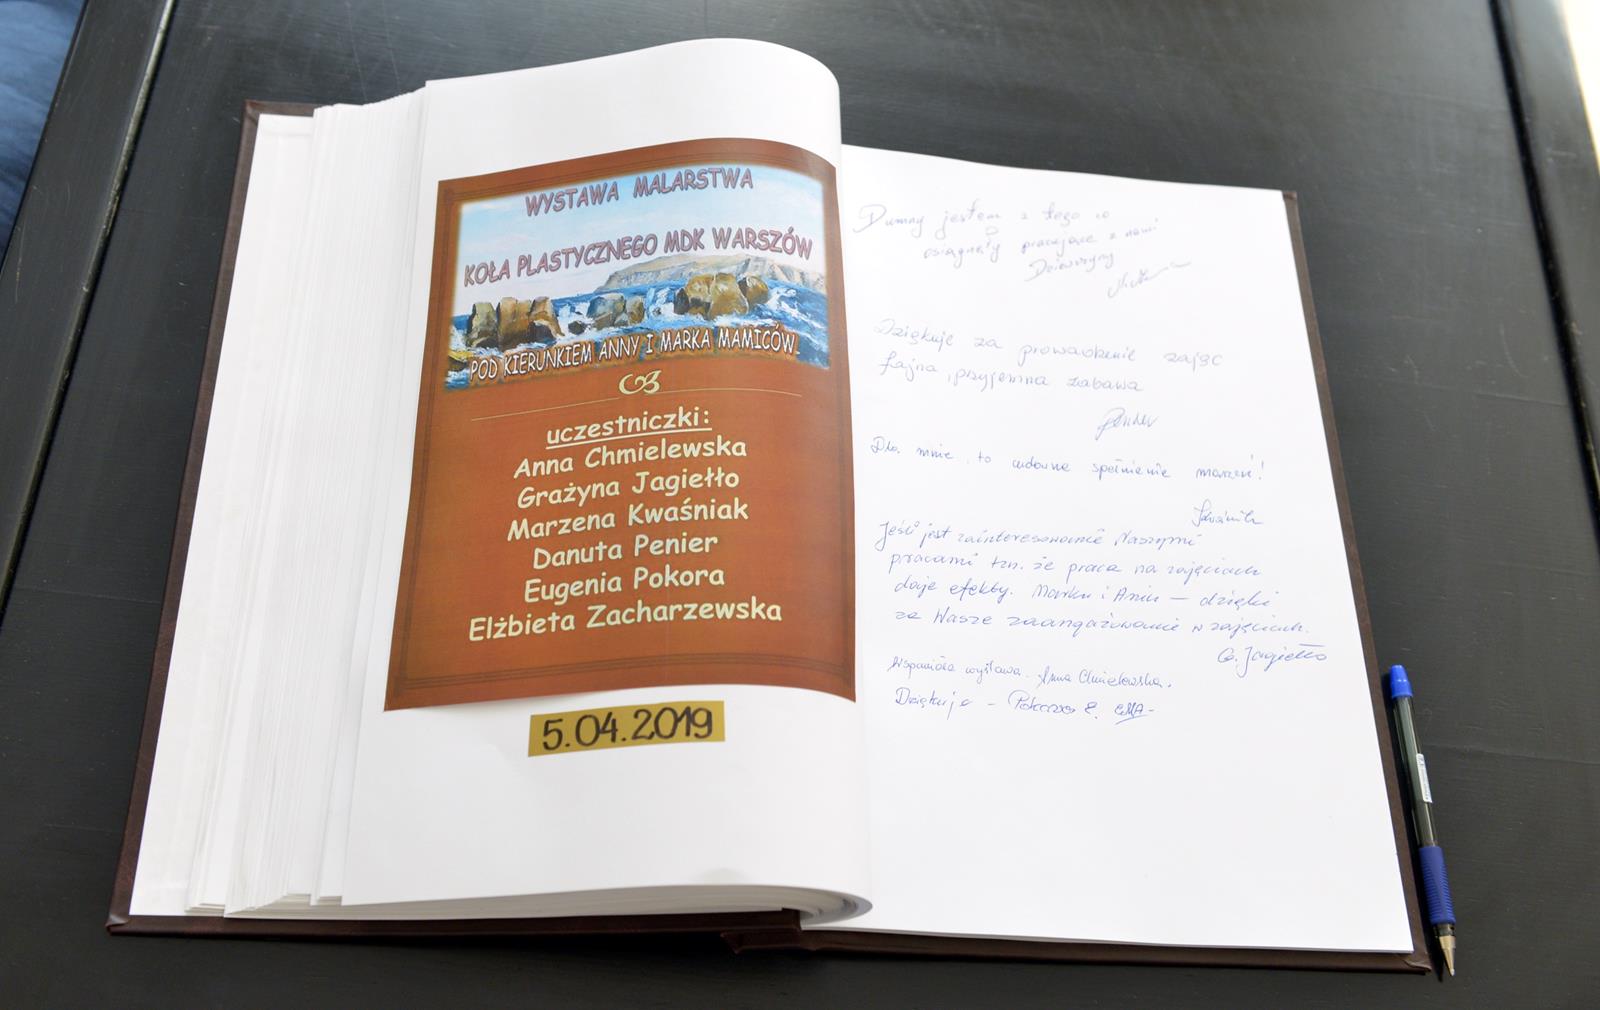 WYSTAWA MALARSTWA
KOŁA PLASTYCZNEGO MDK WARSZÓW
POD KIERUNKIEM ANNY I MARKA MAMICÓW
uczestniczki:
Anna Chmielewska
Grażyna Jagiełło
Marzena Kwaśniak
Danuta Penier
Eugenia Pokora
Elżbieta Zacharzewska
5.04.2019
Dumny jestem z tego co
osiągnęły pracujące z nami
Dziewczyny
Dziękuje za prowadzenie zajęc
fajna, przyjemna zabawa
Penier
Dla mnie, to cudowne spełnienie marzeń!
Jeśli jest zainteresowanie Naszymi
pracami tzn. że praca na zajęciach
daje efekty. Marku i Aniu – dzięki
za Wasze zaangażowanie w zajęciach.
G. Jagiełło
Wspaniała wystawa. Anna Chmielewska.
Dziękuje – Pokora E.